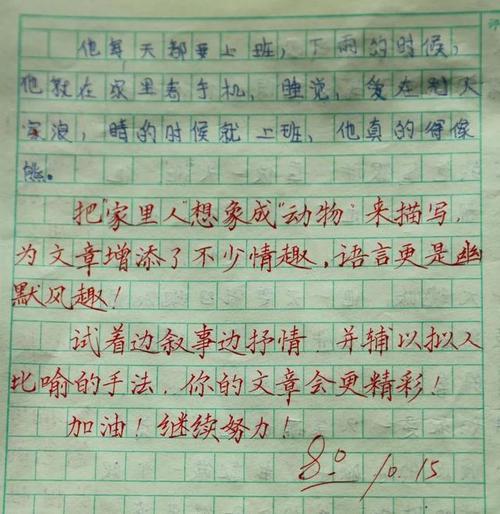 他每天都要上班，下雨的时候，
他就在家里看手机，睡觉，爱在聊天
浪，晴的时候就上班，他真的得像
熊。
把“家里人”想象成“动物”来描写，
为文章增添了不少情趣，语言更是幽
默风趣！
试着边叙事边抒情，并辅以拟人
比喻的手法，你的文章会更精彩！
加油！继续努力！
80 10.15